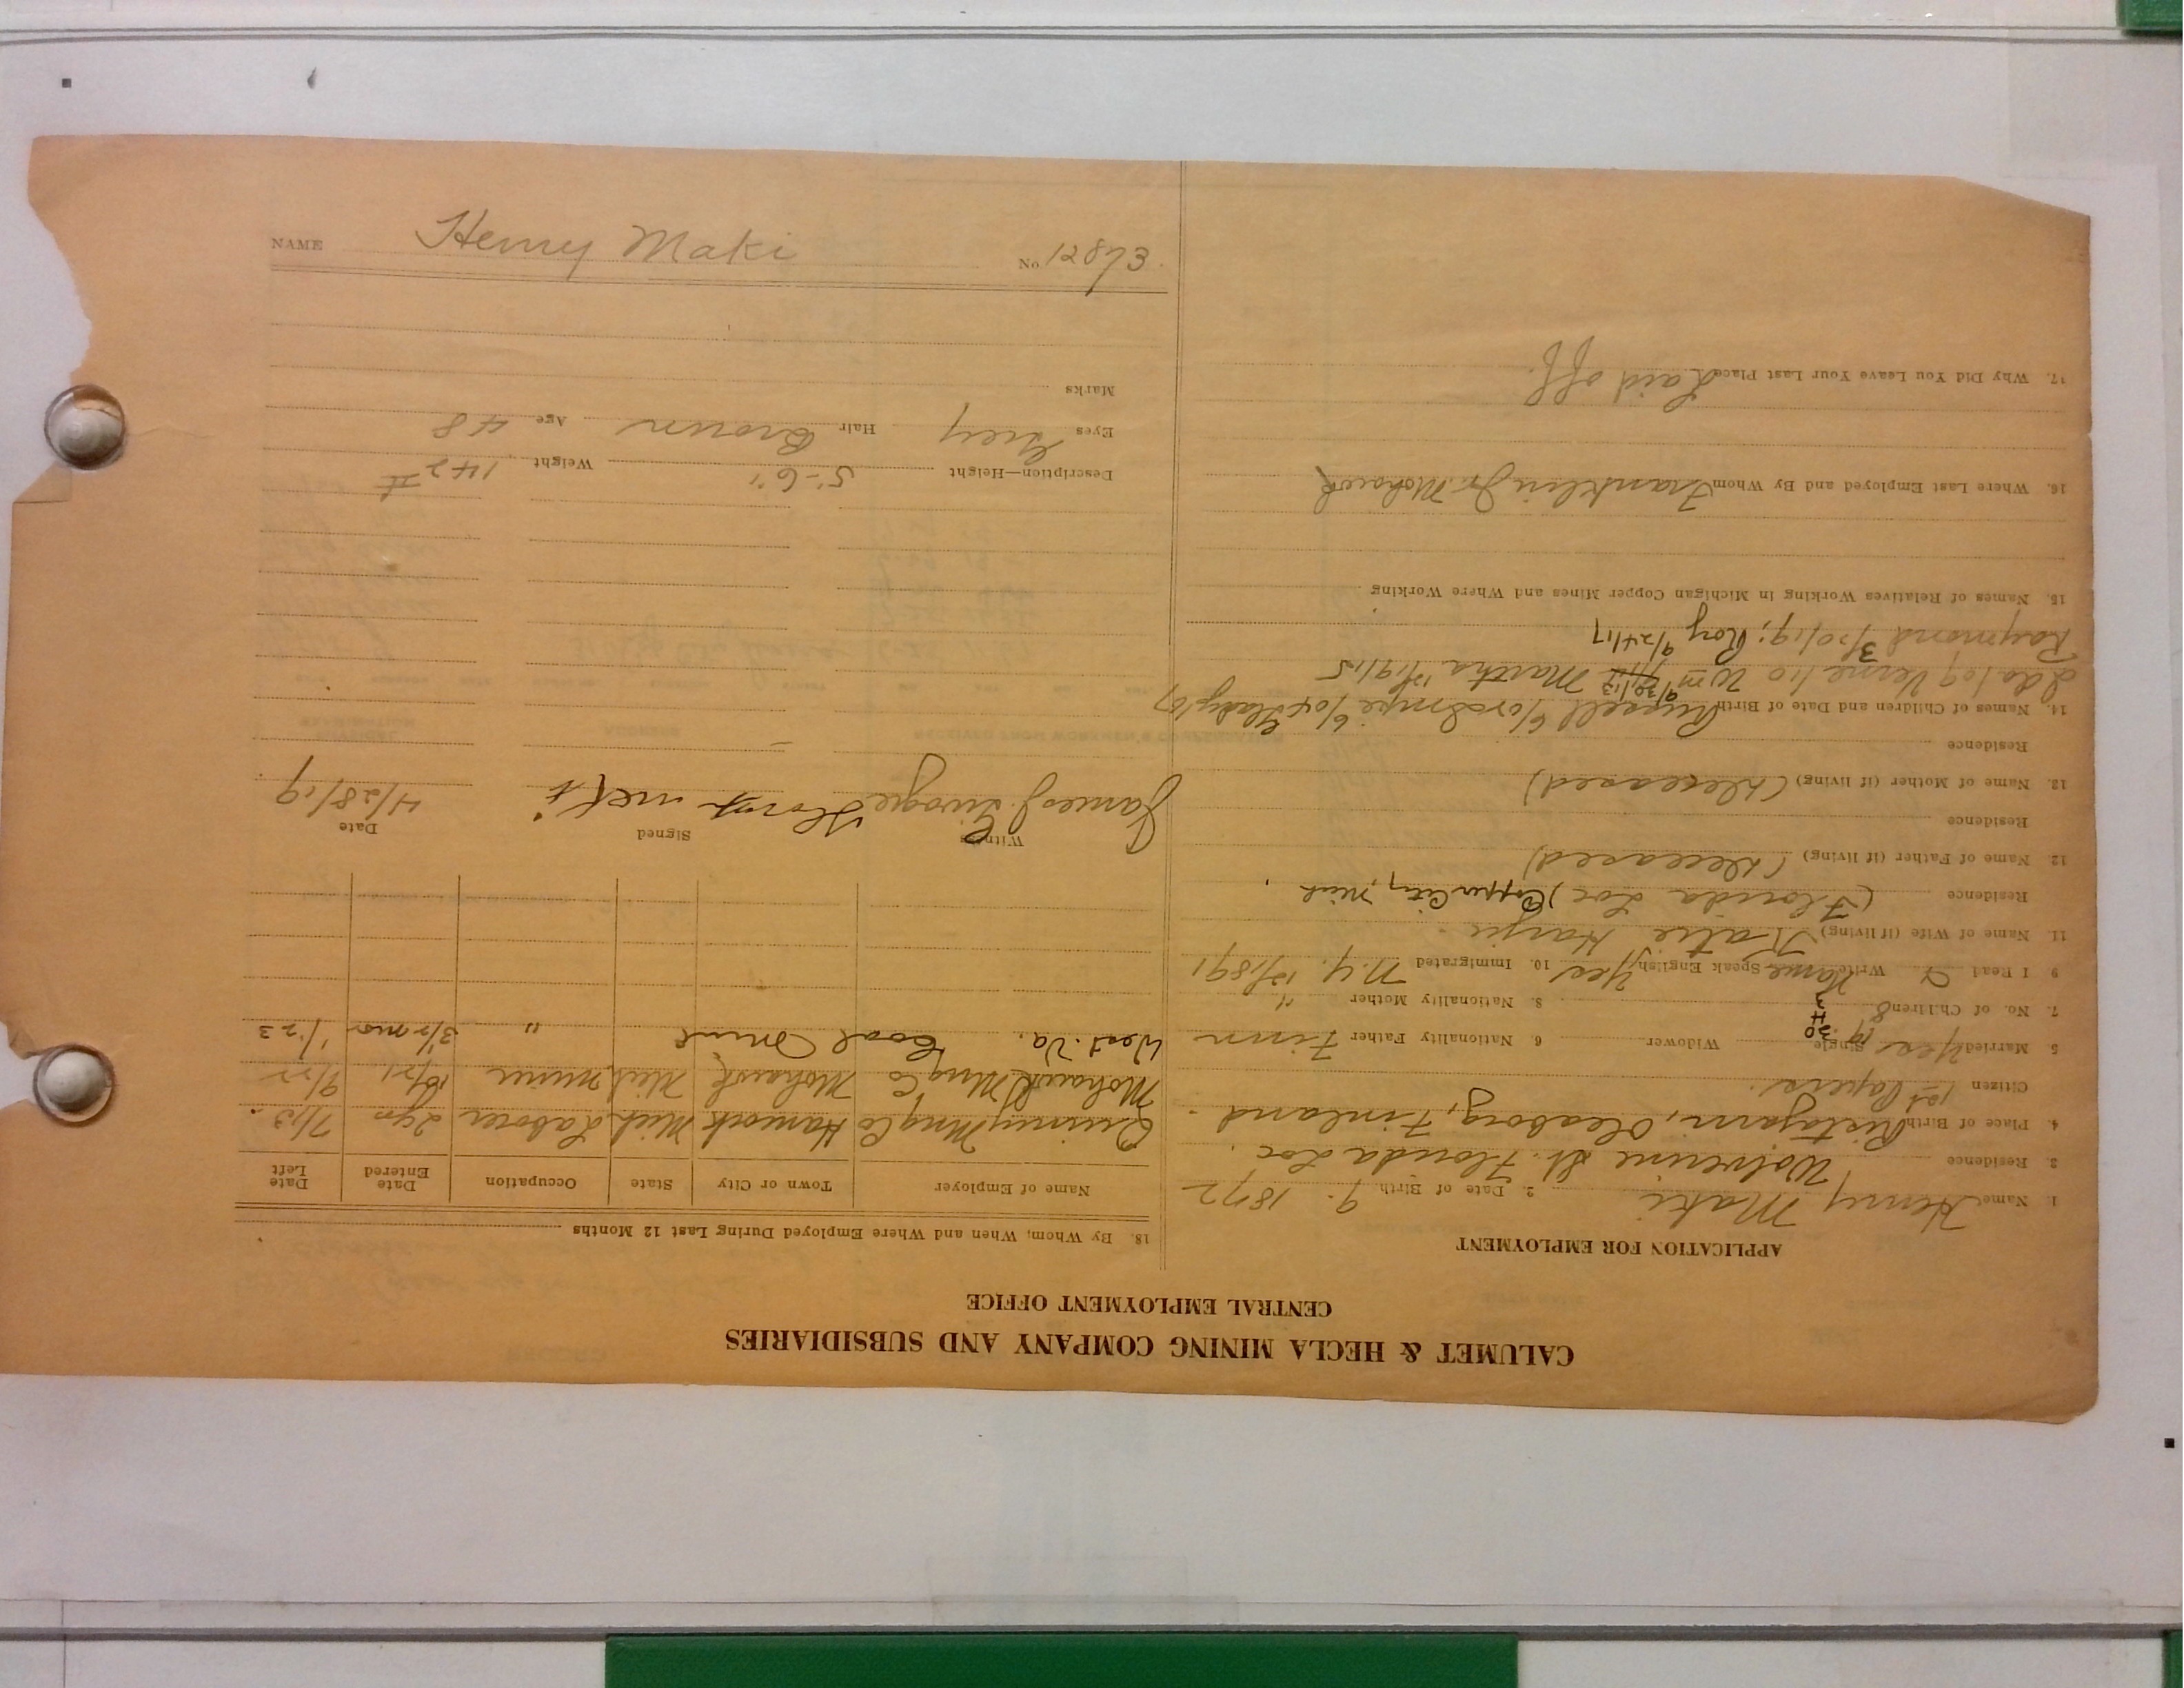 CALUMET & HECLA MINING COMPANY AND SUBSIDIARIES
CENTRAL EMPLOYMENT OFFICE
APPLICATION FOR EMPLOYMENT
1. Name Henry Maki 2. Date of Birth 9. 1872
3. Residence Wolverine St. Florida Loc.
4. Place of Birth Ristijarvi, Oleaborg, Finland.
Citizen 1st Papers.
5. Married Yes 19 Single Widower 6. Nationality Father Finn
7. No. of Children 8 8. Nationality Mother "
9 I Read Write Name Speak English Yes 10. Immigrated N.Y. 12/1891
11. Name of Wife (if living) Katie Harju.
Residence (Florida Loc) Copper City, Mich.
12. Name of Father (if living) (Deceased)
Residence
13. Name of Mother (if living) (Deceased)
Residence
14. Names of Children and Date of Birth Russell 6/02 Impi 6/04 Gladys/07
Ida/09 Verne/10 Wm 9/30/13 Martha 12/19/15
Raymond 3/20/19; Roy 9/24/17
15. Names of Relatives Working in Michigan Copper Mines and Where Working
16. Where Last Employed and By Whom Franklin Jr. Mohawk
17. Why Did You Leave Your Last Place Laid off.
18. By Whom, When and Where Employed During Last 12 Months
Name of Employer Town or City State Occupation Date Entered Date Left
Quincy Mng Co Hancock Mich Laborer 2 yrs 7/13.
Mohawk Mng Co Mohawk Mich miner 10/21 9/22
West. Va. Coal Mine " 3 1/2 mos 1/23
Witness Signed Date
James J. 4/28/19
Description—Height 5'-6" Weight 142 #
Eyes Grey Hair Brown Age 48
Marks
NAME Henry Maki No. 12873.